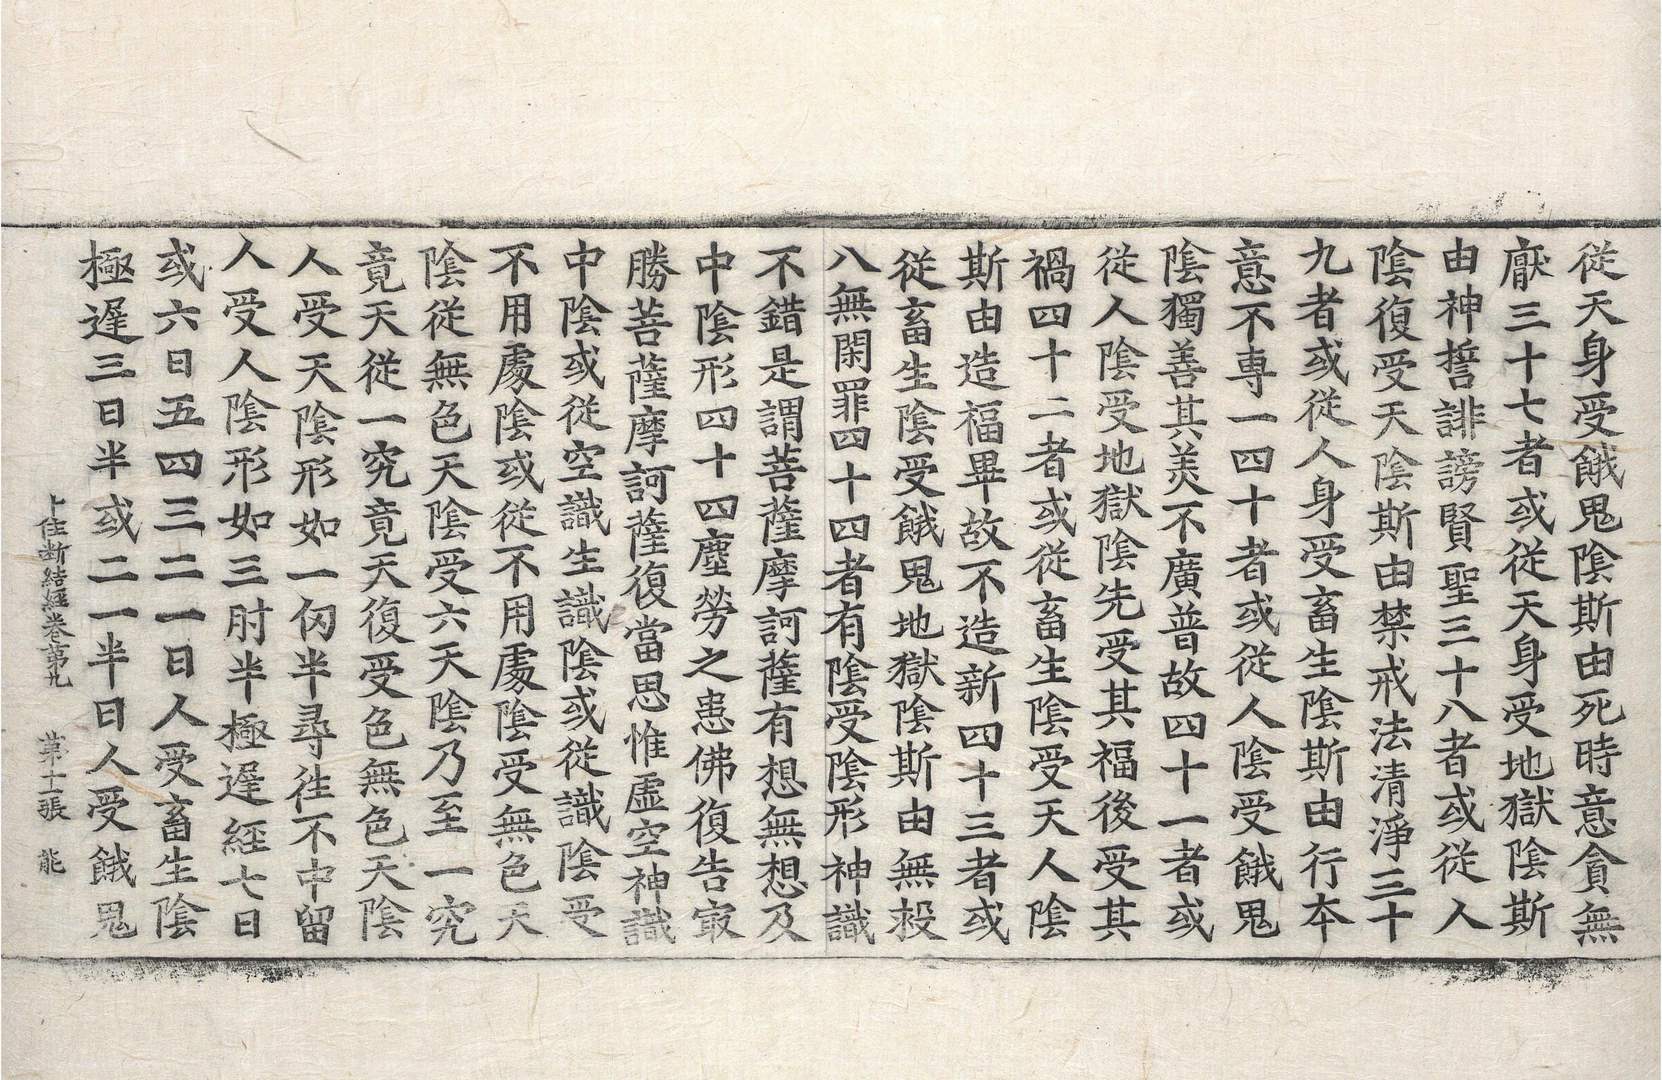 從天身受餓鬼陰斯由死時意貪無
厭三十七者或從天身受地獄陰斯
由神誓誹謗賢聖三十八者或從人
陰復受天陰斯由禁戒法清淨三十
九者或從人身受畜生陰斯由行本
意不專一四十者或從人陰受餓鬼
陰獨善其美不廣普故四十一者或
從人陰受地獄陰先受其福後受其
禍四十二者或從畜生陰受天人陰
斯由造福畢故不造新四十三者或
從畜生陰受餓鬼地獄陰斯由無投
八無閑罪四十四者有陰受陰形神識
不錯是謂菩薩摩訶薩有想無想及
中陰形四十四塵勞之患佛復告㝡
勝菩薩摩訶薩復當思惟虛空神識
中陰或從空識生識陰或從識陰受
不用處陰或從不用處陰受無色天
陰從無色天陰受六天陰乃至一究
竟天從一究竟天復受色無色天陰
人受天陰形如一仞半尋往不中留
人受人陰形如三肘半極遲經七日
或六日五四三二一日人受畜生陰
極遲三日半或二一半日人受餓鬼
十住断結経卷第九 第十一張 能